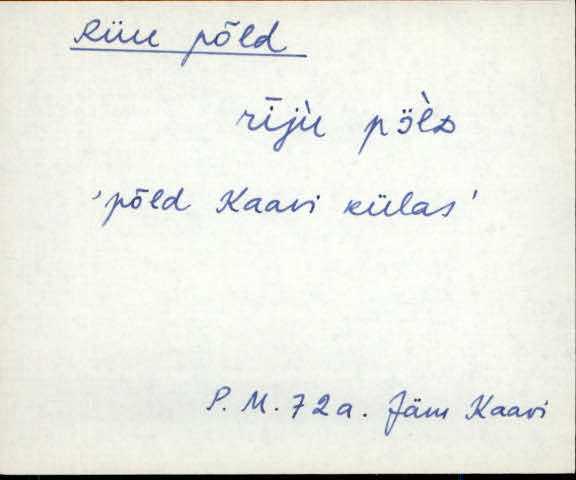 Riiu põld
rīji̬u pö̀lᴅ
'põld Kaavi külas'
P. M. 72a. Jäm Kaavi